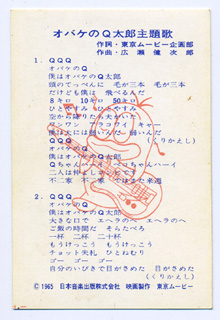 オバケのQ太郎主題歌
作詞・東京ムービー企画部
作曲・広瀬健次郎
1. QQQ
オバケのQ
僕はオバケのQ太郎
頭のてっぺんに 毛が三本 毛が三本
だけども僕は 飛べるんだ
8キロ 10キロ 50キロ
空から降りたら 犬がいた
僕は犬には弱いんだ 弱いんだ
(くりかえし)
オバケのQ
僕はオバケのQ太郎
Qちゃんハーイ Pコちゃんハーイ
二人は仲よし
2. QQQ
オバケのQ
僕はオバケのQ太郎
大きな口で エヘラのへ エヘラのへ
ご飯の時間だ そらたべろ
一杯 二杯 二十杯
もうけっこう もうけっこう
チョット失礼 ひとねむり
ゴー ゴー ゴー
自分のいびきで目がさめた 目がさめた
(くりかえし)
© 1965 日本音楽出版株式会社 映画製作 東京ムービー